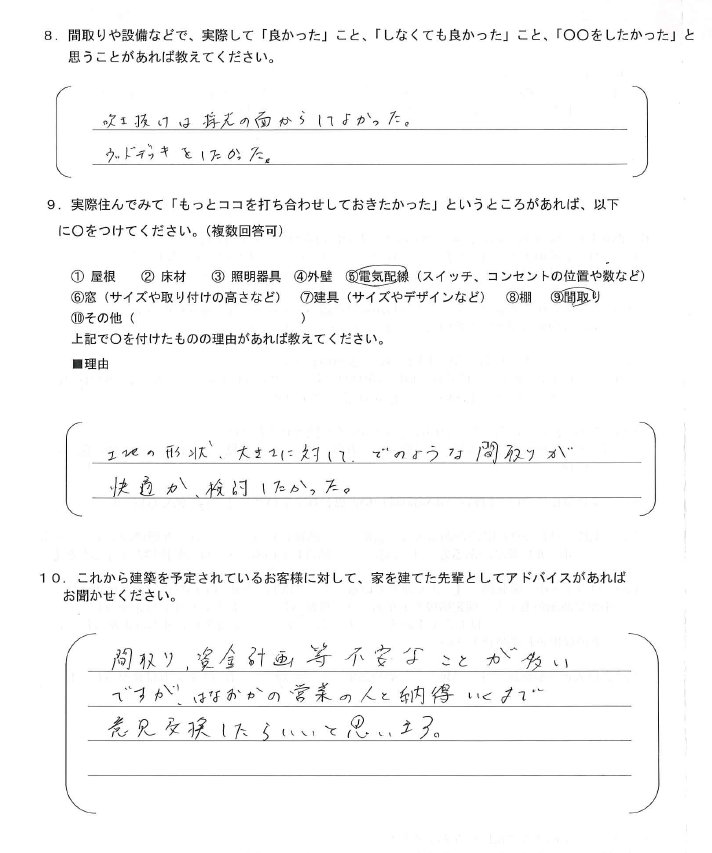 ８．間取りや設備などで、実際して「良かった」こと、「しなくても良かった」こと、「〇〇をしたかった」と
思うことがあれば教えてください。
吹き抜けは採光の面からしてよかった。
ウッドデッキをしたかった。
９．実際住んでみて「もっとココを打ち合わせしておきたかった」というところがあれば、以下
に〇をつけてください。（複数回答可）
① 屋根　② 床材　③ 照明器具　④外壁　⑤電気配線（スイッチ、コンセントの位置や数など）
⑥窓（サイズや取り付けの高さなど）　⑦建具（サイズやデザインなど）　⑧棚　⑨間取り
⑩その他（　　　　　　　　　　　　）
上記で〇を付けたものの理由があれば教えてください。
■理由
土地の形状、大きさに対して、どのような間取りが
快適か、検討したかった。
１０．これから建築を予定されているお客様に対して、家を建てた先輩としてアドバイスがあれば
お聞かせください。
間取り、資金計画等不安なことが多い
ですが、はなおかの営業の人と納得いくまで
意見交換したらいいと思います。